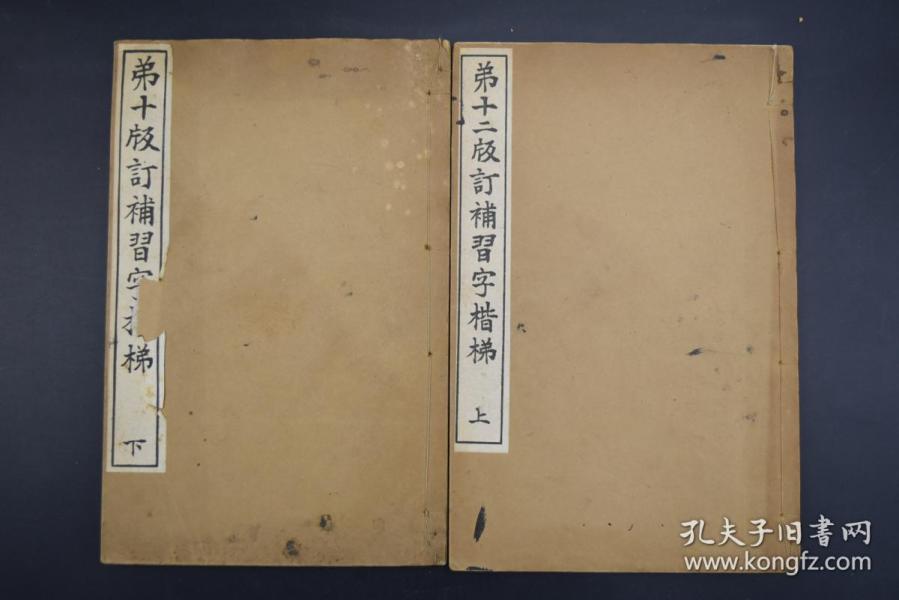 弟十版訂補習字梯
下
弟十二版訂補習字楷梯
上
孔夫子旧书网
www.kongfz.com